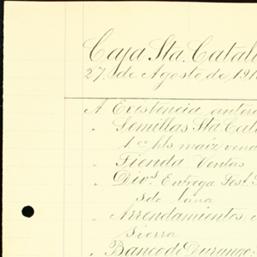 Caja Sta. Catali
27 de Agosto de 191
A Existencia anteri
" Semillas Sta Cat
1 c/ hls maiz vend
" Tienda Ventas
" Divs Entrega José
de
" Arrendamientos
Sierra
" Banco de Durango